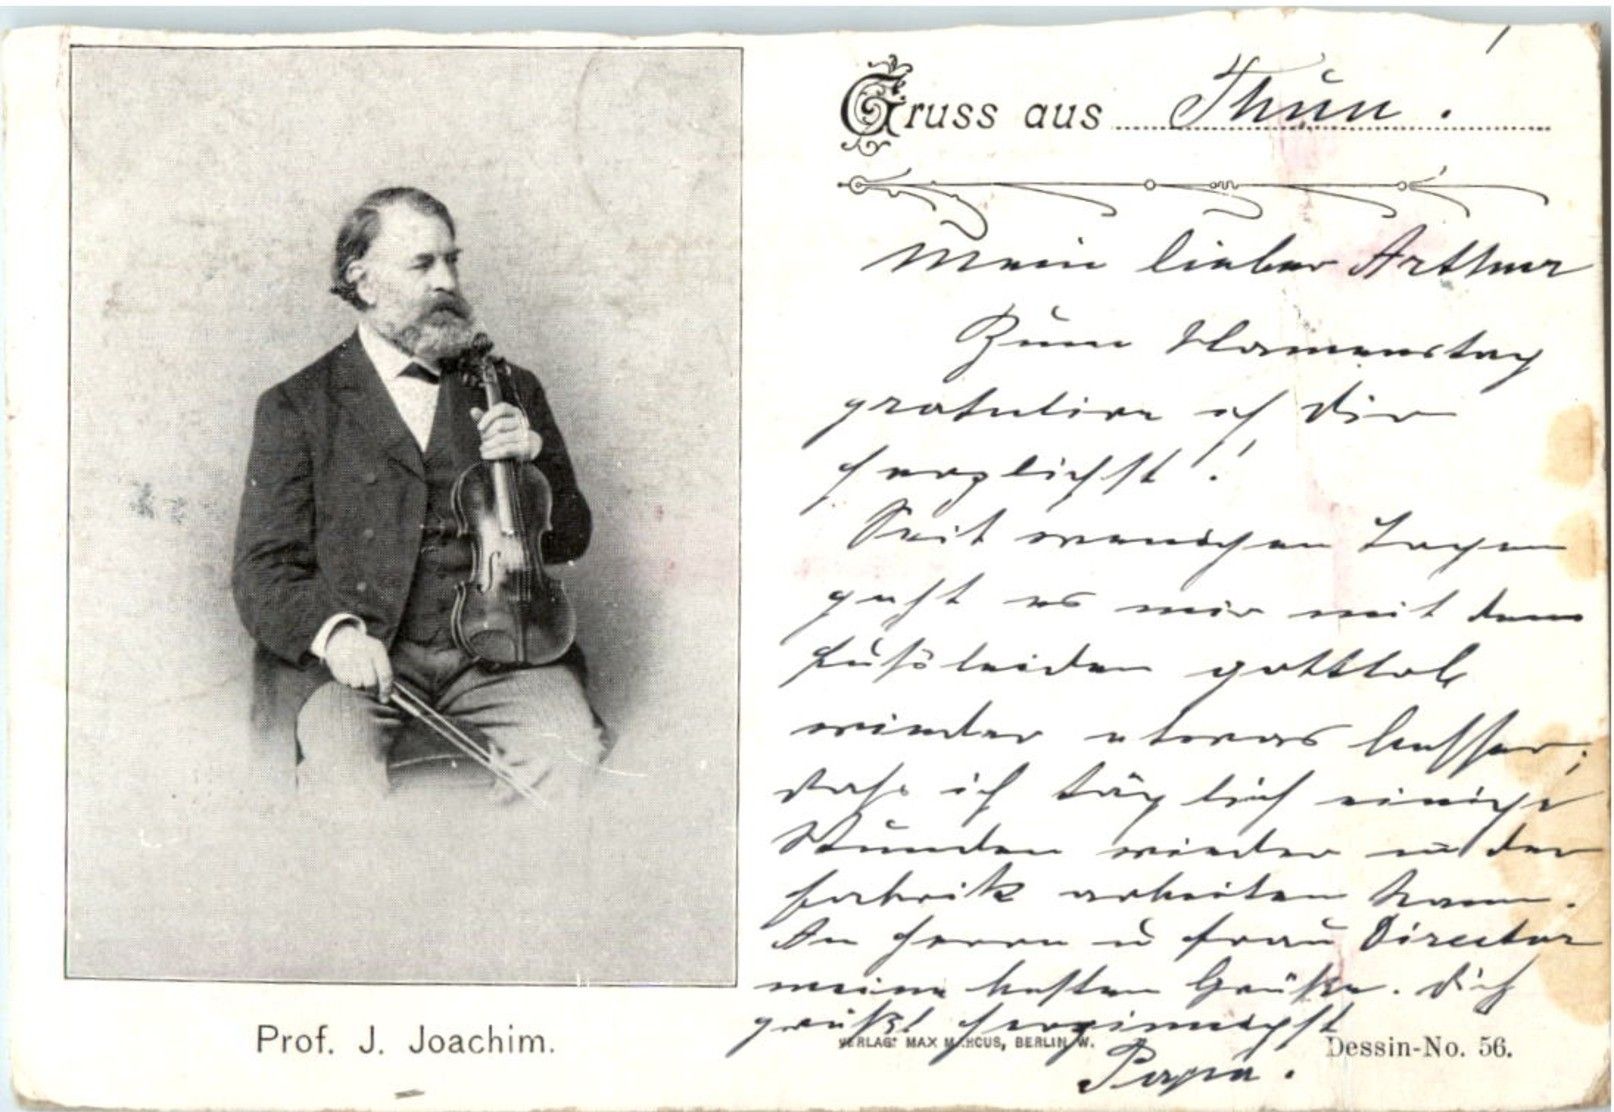 Gruss aus Thun.
Mein lieber Arthur
Zum Namenstag
gratulire ich Dir
herzlichst!
Seit wenigen Tagen
geht es mir mit dem
Fußleiden gottlob
wieder etwas besser,
daß ich täglich einige
Stunden wieder in der
Fabrik arbeiten kann.
An Herrn u Frau Director
meine besten Grüße. Dich
grüßt herzinnigst
Papa.
Prof. J. Joachim.
VERLAG: MAX MARCUS, BERLIN W.
Dessin-No. 56.